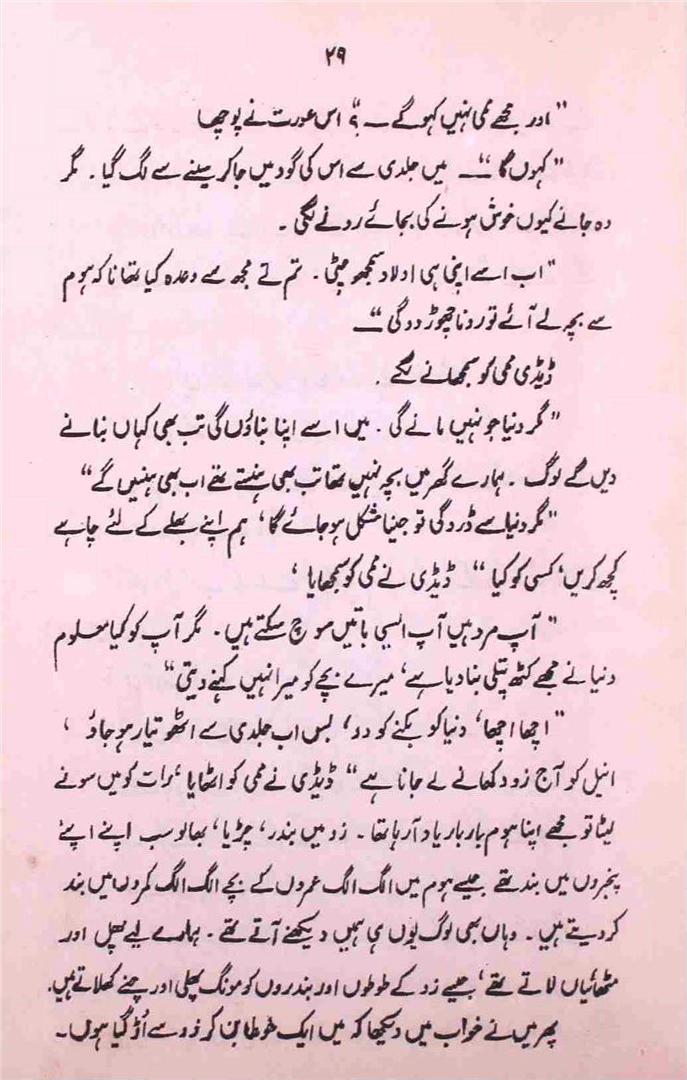 ۲۹
" اور مجھے ممی نہیں کہو گے ــ ؟ " اس عورت نے پوچھا
" کہوں گا " ــ میں جلدی سے اس کی گود میں جا کر سینے سے لگ گیا ۔ مگر
وہ جانے کیوں خوش ہونے کی بجائے رونے لگی ۔
" اب اسے اپنی ہی اولاد سمجھو ۔ تم نے مجھ سے وعدہ کیا تھا نا کہ ہوم
سے بچہ لے آئے تو رونا چھوڑ دو گی " ــ
ڈیڈی ممی کو سمجھانے لگے ۔
" مگر دنیا جو نہیں مانے گی ۔ میں اسے اپنا بناؤں گی تب بھی کہاں بنانے
دیں گے لوگ ۔ ہمارے گھر میں بچہ نہیں تھا تب بھی ہنستے تھے اب بھی ہنسیں گے "
" مگر دنیا سے ڈرو گی تو جینا مشکل ہو جائے گا ، ہم اپنے بھلے کے لئے چاہے
کچھ کریں ، کسی کو کیا " ڈیڈی نے ممی کو سمجھایا ،
" آپ مرد ہیں آپ ایسی باتیں سوچ سکتے ہیں ۔ مگر آپ کو کیا معلوم
دنیا نے مجھے کٹھ پتلی بنا دیا ہے ، میرے بچے کو میرا نہیں کہنے دیتی "
" اچھا اچھا ، دنیا کو بکنے کو دو ، بس اب جلدی سے اٹھو تیار ہو جاؤ ،
انیل کو آج زو دکھانے لے جانا ہے " ڈیڈی نے ممی کو اٹھایا ، رات کو میں سونے
لیٹا تو مجھے اپنا ہوم بار بار یاد آ رہا تھا ۔ زو میں بندر ، چڑیا ، بھالو سب اپنے اپنے
پنجروں میں بند تھے جیسے ہوم میں الگ الگ عمروں کے بچے الگ الگ کمروں میں بند
کر دیتے ہیں ۔ وہاں بھی لوگ یوں ہی ہمیں دیکھنے آتے تھے ۔ ہمارے لیے پھل اور
مٹھائیاں لاتے تھے ، جیسے زو کے طوطوں اور بندروں کو مونگ پھلی اور چنے کھلاتے ہیں ،
پھر میں نے خواب میں دیکھا کہ میں ایک طوطا بن کر زو سے اُڑ گیا ہوں ۔